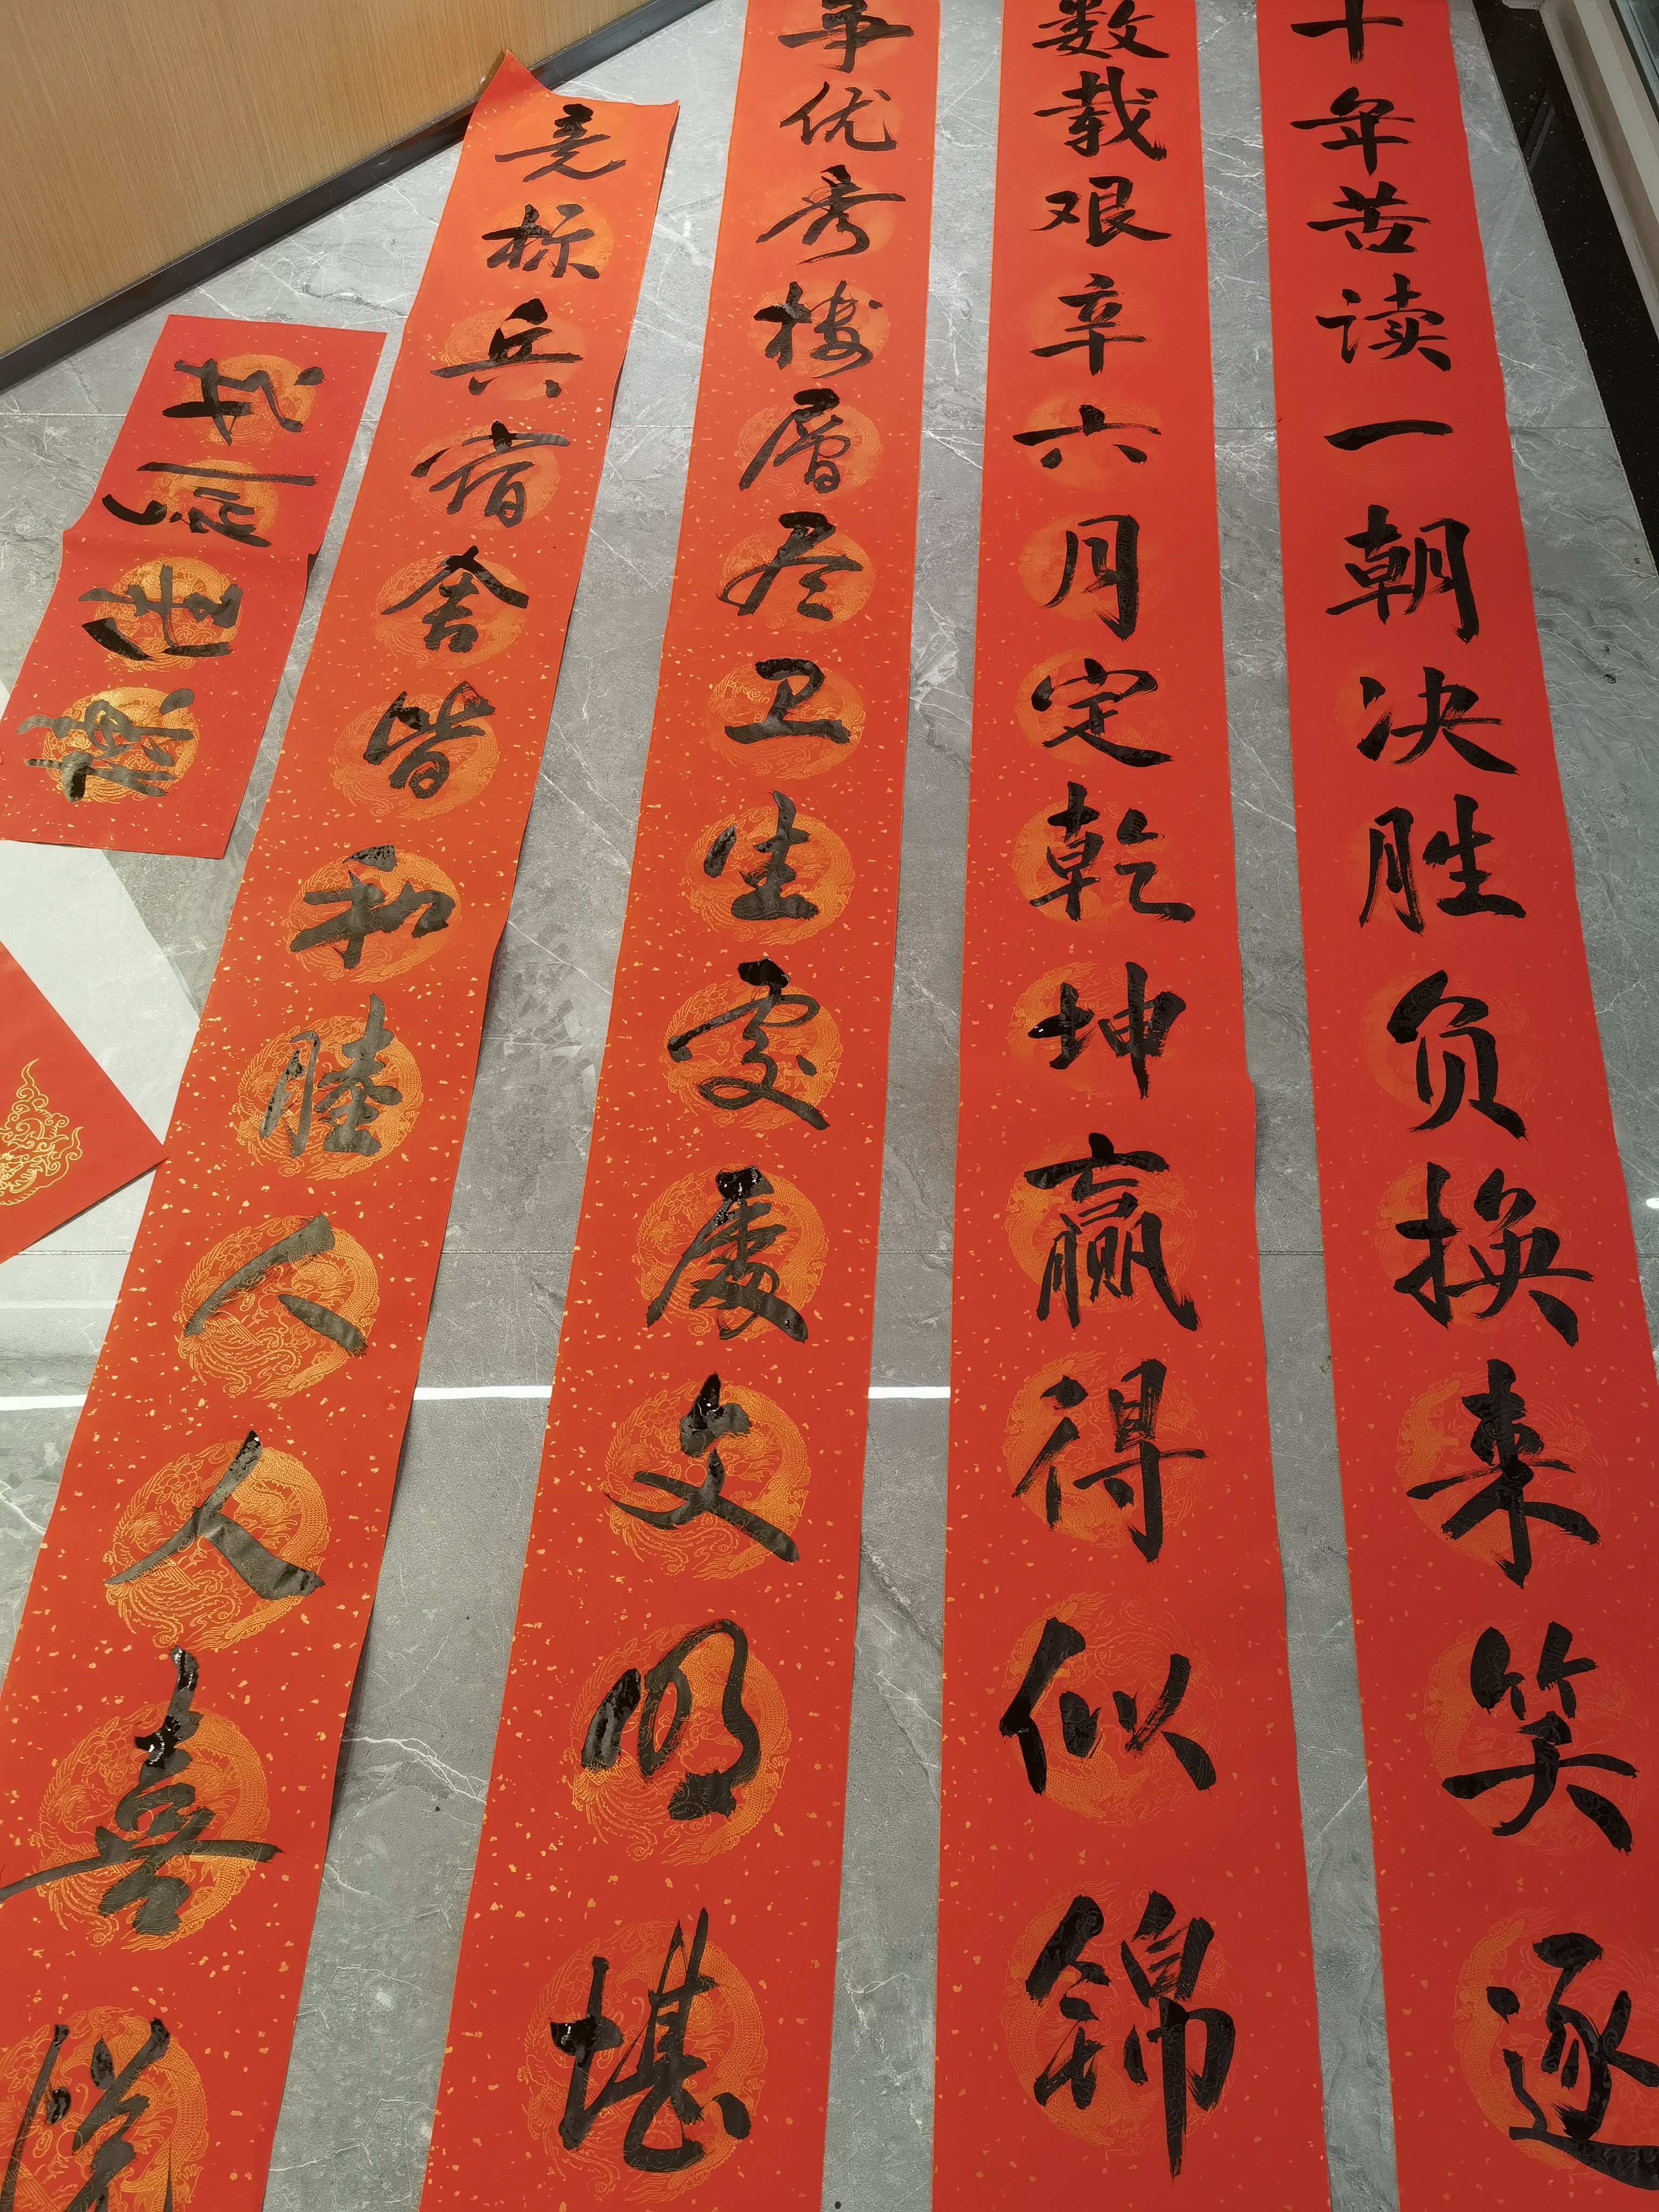 十年苦读一朝决胜负换来笑逐
数载艰辛六月定乾坤赢得似锦
争优秀楼層尽卫生處處文明堪
竞标兵宿舍皆和睦人人喜悦